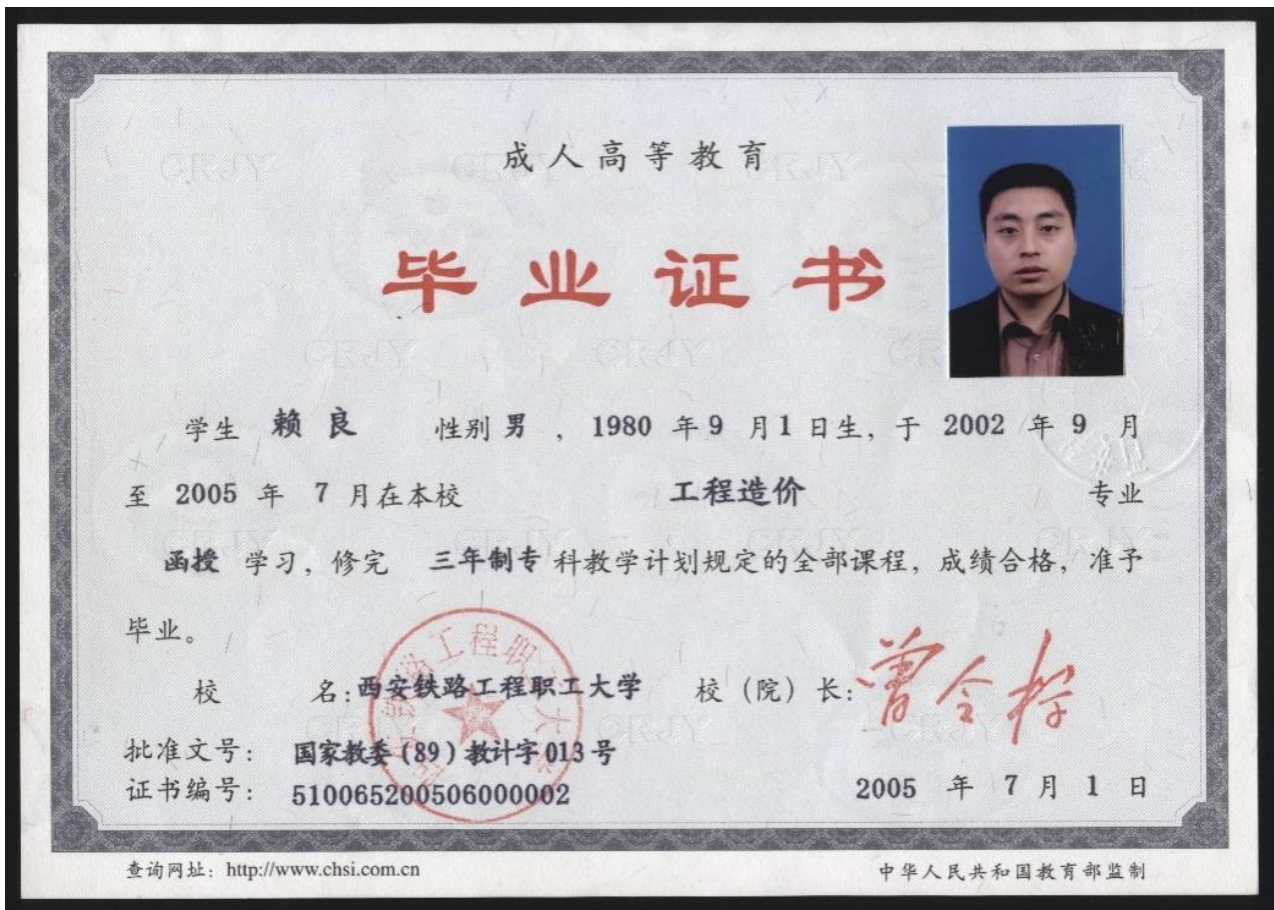 成人高等教育
毕业证书
学生 赖良 性别 男 ，1980 年 9 月 1 日生，于 2002 年 9 月
至 2005 年 7 月在本校 工程造价 专业
函授 学习，修完 三年制专 科教学计划规定的全部课程，成绩合格，准予
毕业。
校 名：西安铁路工程职工大学 校（院）长：
批准文号： 国家教委（89）教计字 013 号
证书编号： 510065200506000002
2005 年 7 月 1 日
查询网址：http://www.chsi.com.cn
中华人民共和国教育部监制